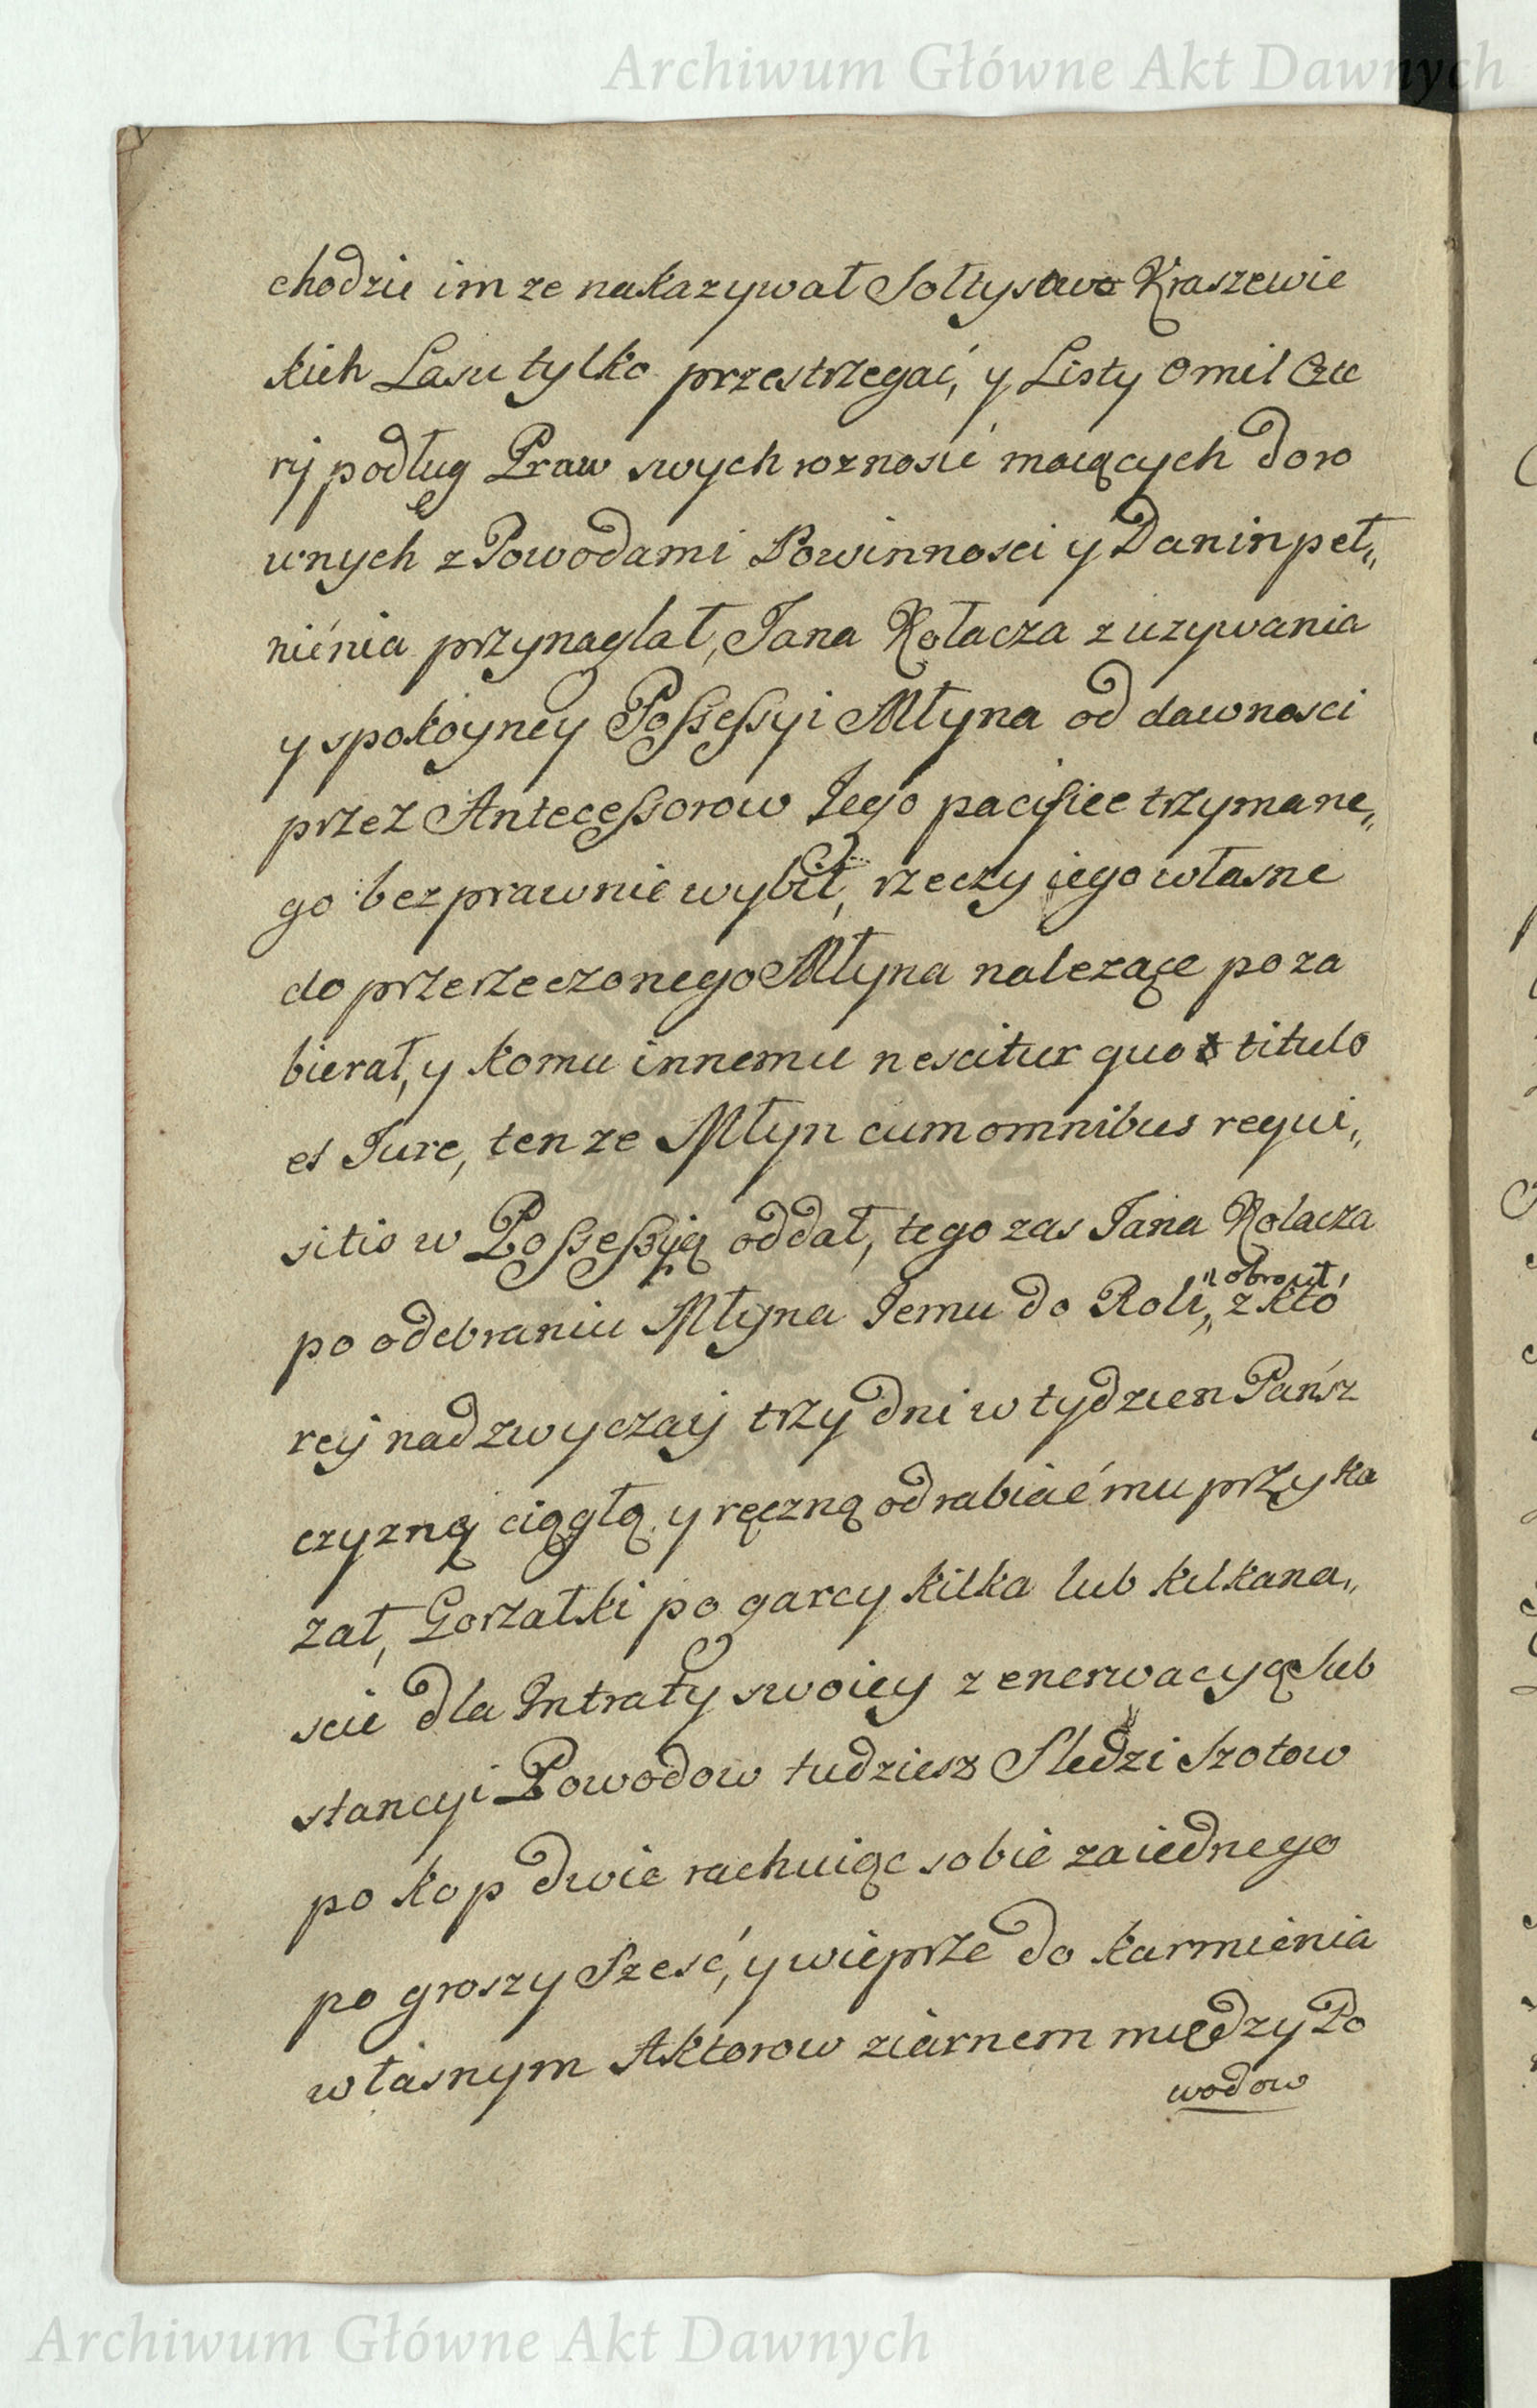 Archiwum Główne Akt Dawnych
chodzie im ze nakazywał Sołtysowo Kraszewic
kich Lasu tylko przestrzegać, y Listy o mil Czte
ry podług Praw swych roznosić maiących doro
wnych z Powodami Powinnosci y Danin peł„
niénia przynaglał, Jana Kołacza z uzywania
y spokoyney Possessyi Młyna od dawnosci
przez Antecessorow Jego pacifice trzymane„
go bezprawnie wybił, rzeczy iego własne
do przerzeczonego Młyna nalezące poza
bierał, y komu innemu nescitur quo titulo
et Jure, tenze Młyn cum omnibus requi„
sitis w Possessyią oddał, tego zas Jana Kolacza
po odebraniu Młyna Jemu do Roli „obrocił, z któ
rey nadzwyczay trzy dni w tydzien Pańsz
czyzną ciągłą y ręczną odrabiać mu przyka
zał, Gorzałki po garcy kilka lub kilkana„
scie dla Intraty swoiey z enerwacyą Sub
stancyi Powodow tudziesz Sledzi Szotow
po kop dwie rachuiąc sobie za iednego
po groszy Szesć, y wieprze do karmienia
własnym Aktorow ziarnem między Po
wodow
Archiwum Główne Akt Dawnych